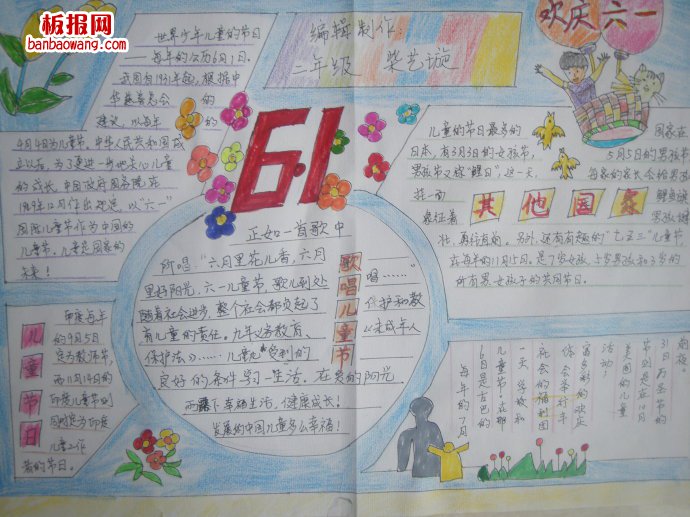 板报网
banbaowang.com
世界少年儿童的节日
——每年的公历6月1号。
我国自1931年起,根据中
华慈善总会的
建议,以每年的
4月4日为儿童节,中华人民共和国成
立以后,为了更进一步地关心儿童
的成长,中国政府国务院在
1949年12月作出规定,以“六一”
国际儿童节作为中国的
儿童节。儿童是国家的
未来!
编辑制作:
二年级 荣艺璇
欢庆六一
6.1
儿童的节日最多的国家在
日本,有3月3日的女孩节,5月5日的男孩节
男孩节又称“鲤日”这一天,每家的家长会给男孩
挂一面
鲤鱼旗
象征着
男孩健
其他国家
壮,勇往直前。另外,还有有趣的“七五三”儿童节,
在每年的11月15日。是7岁女孩、5岁男孩和3岁的
所有男女孩子的共同节日。
正如一首歌中
所唱:“六月里花儿香,六月
里好阳光,六一儿童节,歌儿到处唱……”
随着社会进步,整个社会都负起了保护和教
育儿童的责任。九年义务教育、《未成年人
保护法》……儿童们受到的
良好的条件学习生活。在爱的阳光
雨露下幸福生活,健康成长!
发展的中国儿童多么幸福!
歌唱儿童节
儿童节日
印度每年
的9月5日
定为教师节,
而11月14日的
印度儿童节则
同时定为印度
儿童工作
者的节日。
31日万圣节的
节日是在10月
美国的儿童
活动!
富多彩的欢庆
体会举行丰
社会的福利团
一天,学校和
儿童节。在那
6日是古巴的
每年的7月